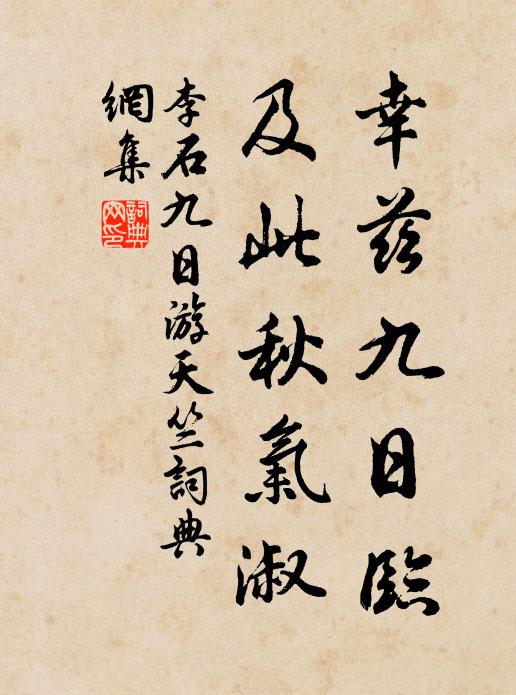 幸茲九日臨
及此秋氣淑
李石九日游天竺詞典
網集
詞典
网印